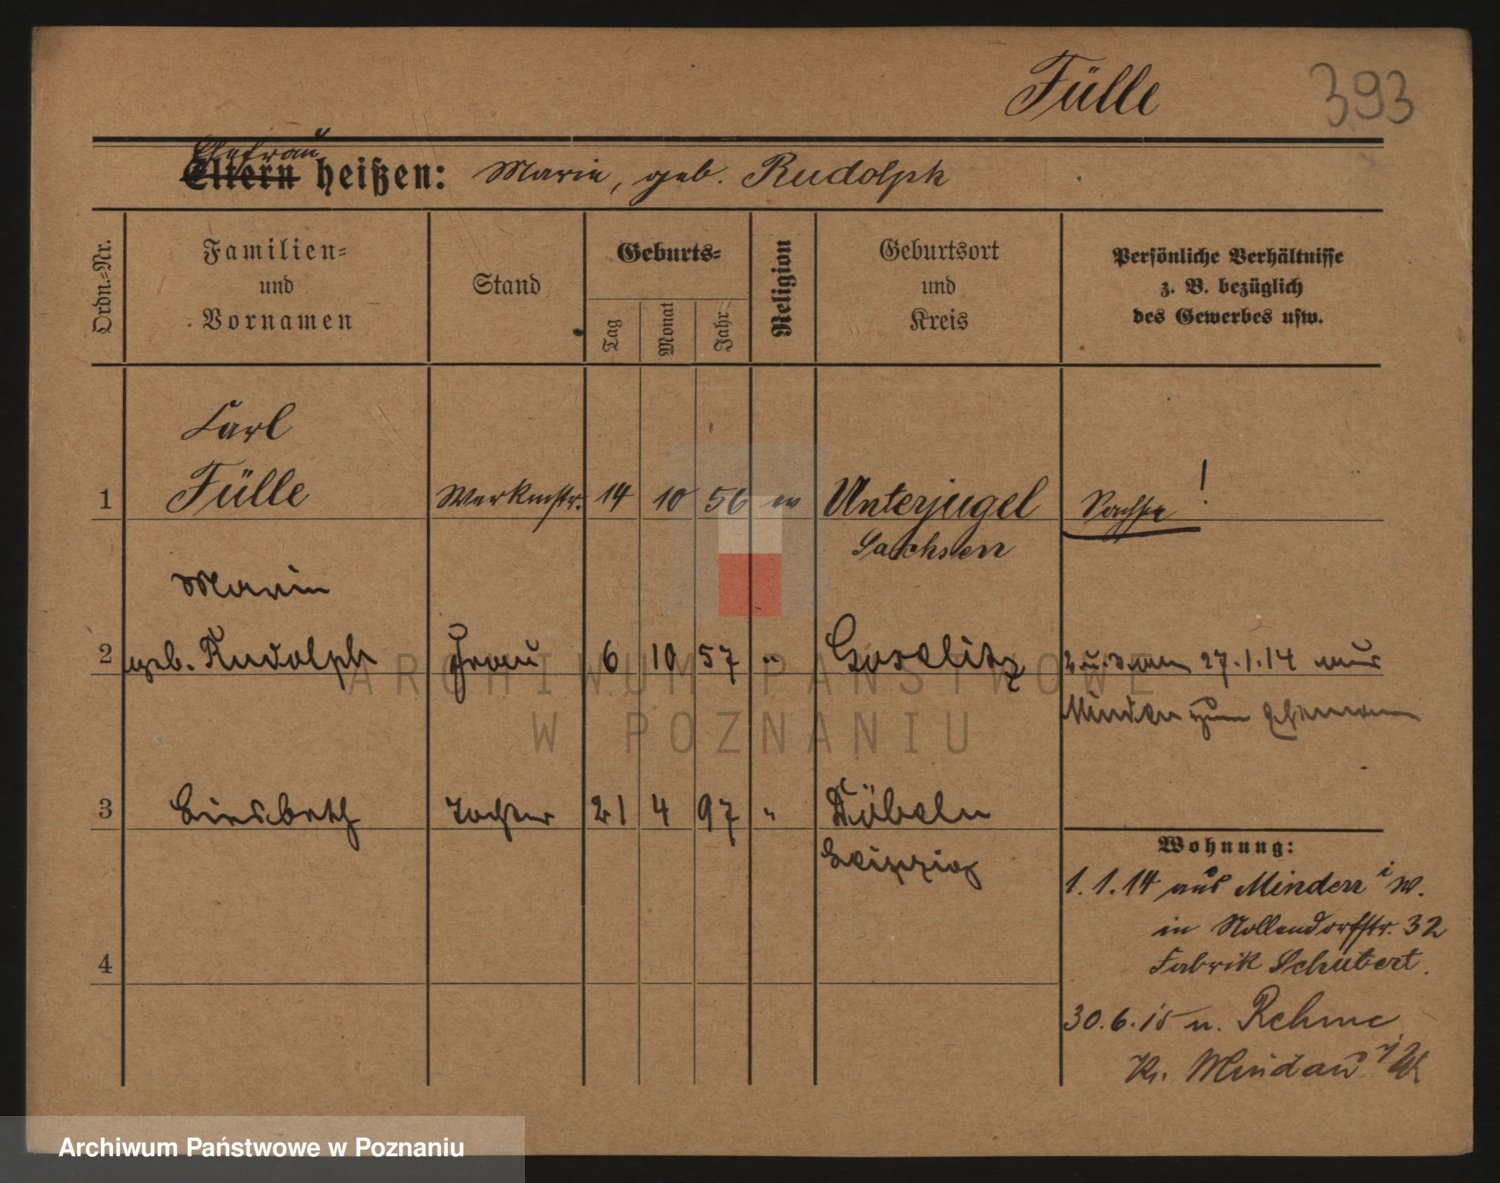 Fülle 393
Ehefrau
Eltern heißen: Marie, geb. Rudolph
Ordn.-Nr.
Familien-
und
Vornamen
Stand
Geburts-
Tag
Monat
Jahr
Religion
Geburtsort
und
Kreis
Persönliche Verhältnisse
z. B. bezüglich
des Gewerbes usw.
Carl
1 Fülle Werkmstr. 14 10 56 ev Unterjugel Sachse!
Sachsen
Marie
2 geb. Rudolph Frau 6 10 57 " 2 u. 3 am 27.1.14 aus
Minden zum Ehemann
3 Liesbeth Tochter 21 4 97 " Döbeln
Leipzig
4
Wohnung:
1.1.14 aus Minden i W.
in Nollendorfstr. 32
Fabrik Schubert.
30.6.15 n. Rehme
Kr. Minden i/W
ARCHIWUM PAŃSTWOWE
W POZNANIU
Archiwum Państwowe w Poznaniu